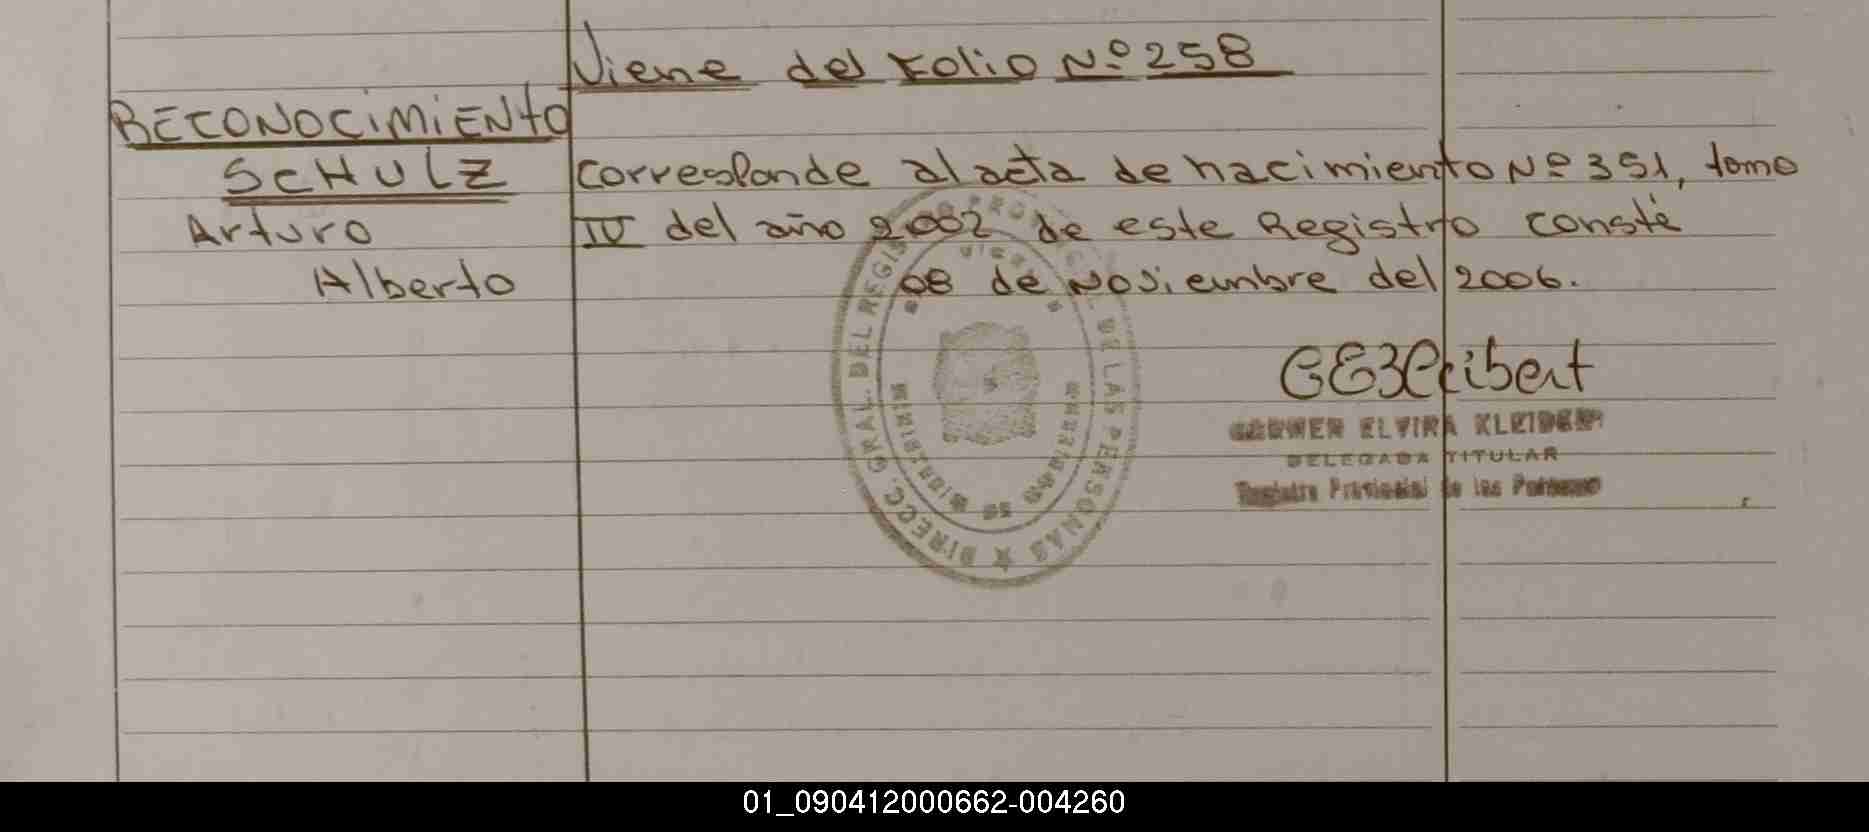 Viene del Folio Nº 258
RECONOCIMIENTO
SCHULZ
Arturo
Alberto
corresponde al acta de nacimiento Nº 351, tomo
IV del año 2002 de este Registro conste
08 de Noviembre del 2006.
DIRECC. GRAL. DEL REGISTRO PROVINCIAL DE LAS PERSONAS ★
CARMEN ELVIRA KLEIBERT
DELEGADA TITULAR
Registro Provincial de las Personas
01_090412000662-004260